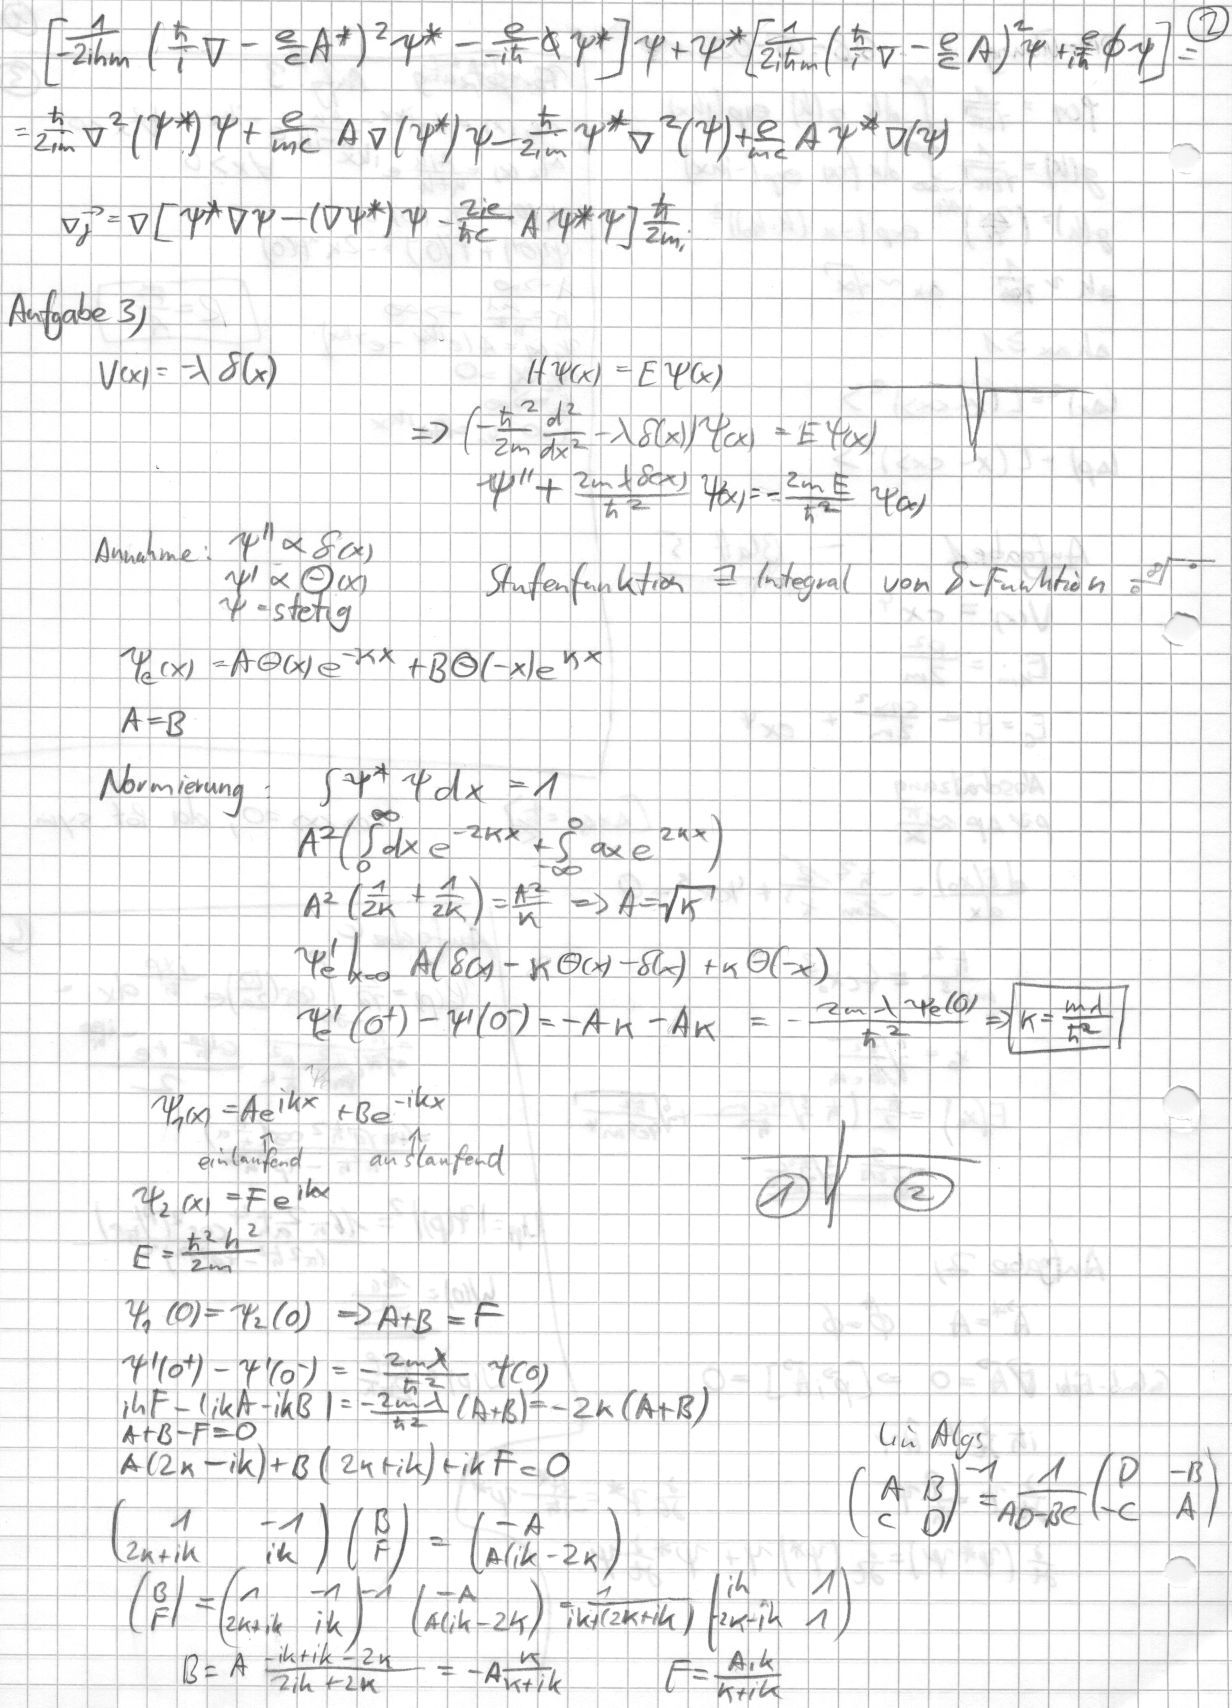 ②
[1/(-2iħm) (ħ/i ∇ - e/c A*)² ψ* - e/(iħ) ϕ ψ*] ψ + ψ* [1/(2iħm) (ħ/i ∇ - e/c A)² ψ + e/(iħ) ϕ ψ] =
= ħ/(2im) ∇² (ψ*) ψ + e/(mc) A ∇(ψ*) ψ - ħ/(2im) ψ* ∇² (ψ) + e/(mc) A ψ* ∇(ψ)
∇j⃗ = ∇ [ψ* ∇ψ - (∇ψ*) ψ - 2ie/(ħc) A ψ* ψ] ħ/(2mi)
Aufgabe 3)
V(x) = -λ δ(x)    Hψ(x) = E ψ(x)
=> (-ħ²/(2m) d²/dx² - λ δ(x)) ψ(x) = E ψ(x)
ψ'' + 2mλδ(x)/ħ² ψ(x) = - 2mE/ħ² ψ(x)
Annahme: ψ'' ∝ δ(x)
ψ' ∝ Θ(x)    Stufenfunktion ≡ Integral von δ-Funktion
ψ = stetig
ψe(x) = A Θ(x) e^(-κx) + B Θ(-x) e^(κx)
A = B
Normierung: ∫ ψ* ψ dx = 1
A² (∫₀^∞ dx e^(-2κx) + ∫_(-∞)^0 dx e^(2κx))
A² (1/(2κ) + 1/(2κ)) = A²/κ => A = √κ
ψe'|x=0 A(δ(x) - κ Θ(x) - δ(x) + κ Θ(-x))
ψe'(0⁺) - ψ'(0⁻) = -Aκ - Aκ = - 2mλ ψe(0)/ħ² => κ = mλ/ħ²
ψ₁(x) = A e^(ikx) + B e^(-ikx)
↑ ↑
einlaufend    auslaufend
① ②
ψ₂(x) = F e^(ikx)
E = ħ²k²/(2m)
ψ₁(0) = ψ₂(0) => A+B = F
ψ'(0⁺) - ψ'(0⁻) = - 2mλ/ħ² ψ(0)
ikF - (ikA - ikB) = - 2mλ/ħ² (A+B) = -2κ(A+B)
A+B-F=0
A(2κ - ik) + B(2κ+ik) + ikF = 0
Lin Algs
(A B; C D)^(-1) = 1/(AD-BC) (D -B; -C A)
(1 -1; 2κ+ik ik) (B; F) = (-A; A(ik-2κ))
(B; F) = (1 -1; 2κ+ik ik)^(-1) (-A; A(ik-2κ)) = 1/(ik+(2κ+ik)) (ik 1; -2κ-ik 1)
B = A (-ik+ik-2κ)/(2ik+2κ) = -A κ/(κ+ik)    F = Aik/(κ+ik)